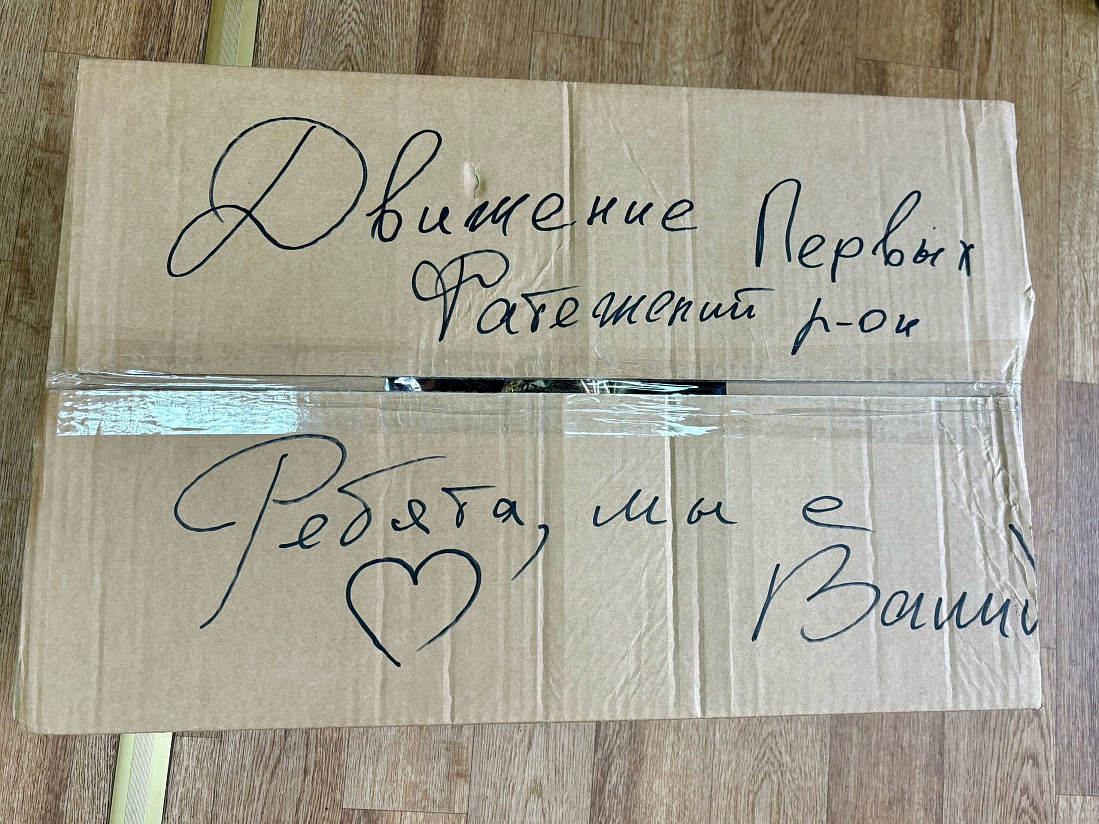 Движение Первых
Фатежский р-он
Ребята, мы с
Вами